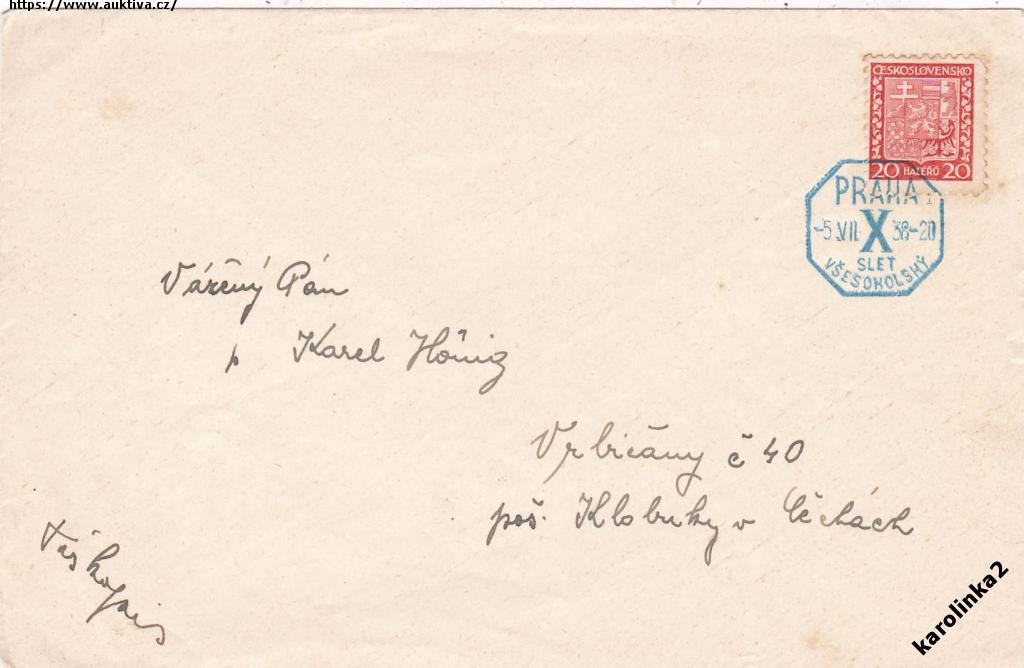 https://www.auktiva.cz/
ČESKOSLOVENSKO
20 HALÉŘŮ 20
PRAHA 1
-5.VII X 38-20
SLET
VŠESOKOLSKÝ
Vážený Pán
p Karel Hönig
Vrbičany č 40
poš. Klobuky v Čechách
Tiskopis
karolinka2